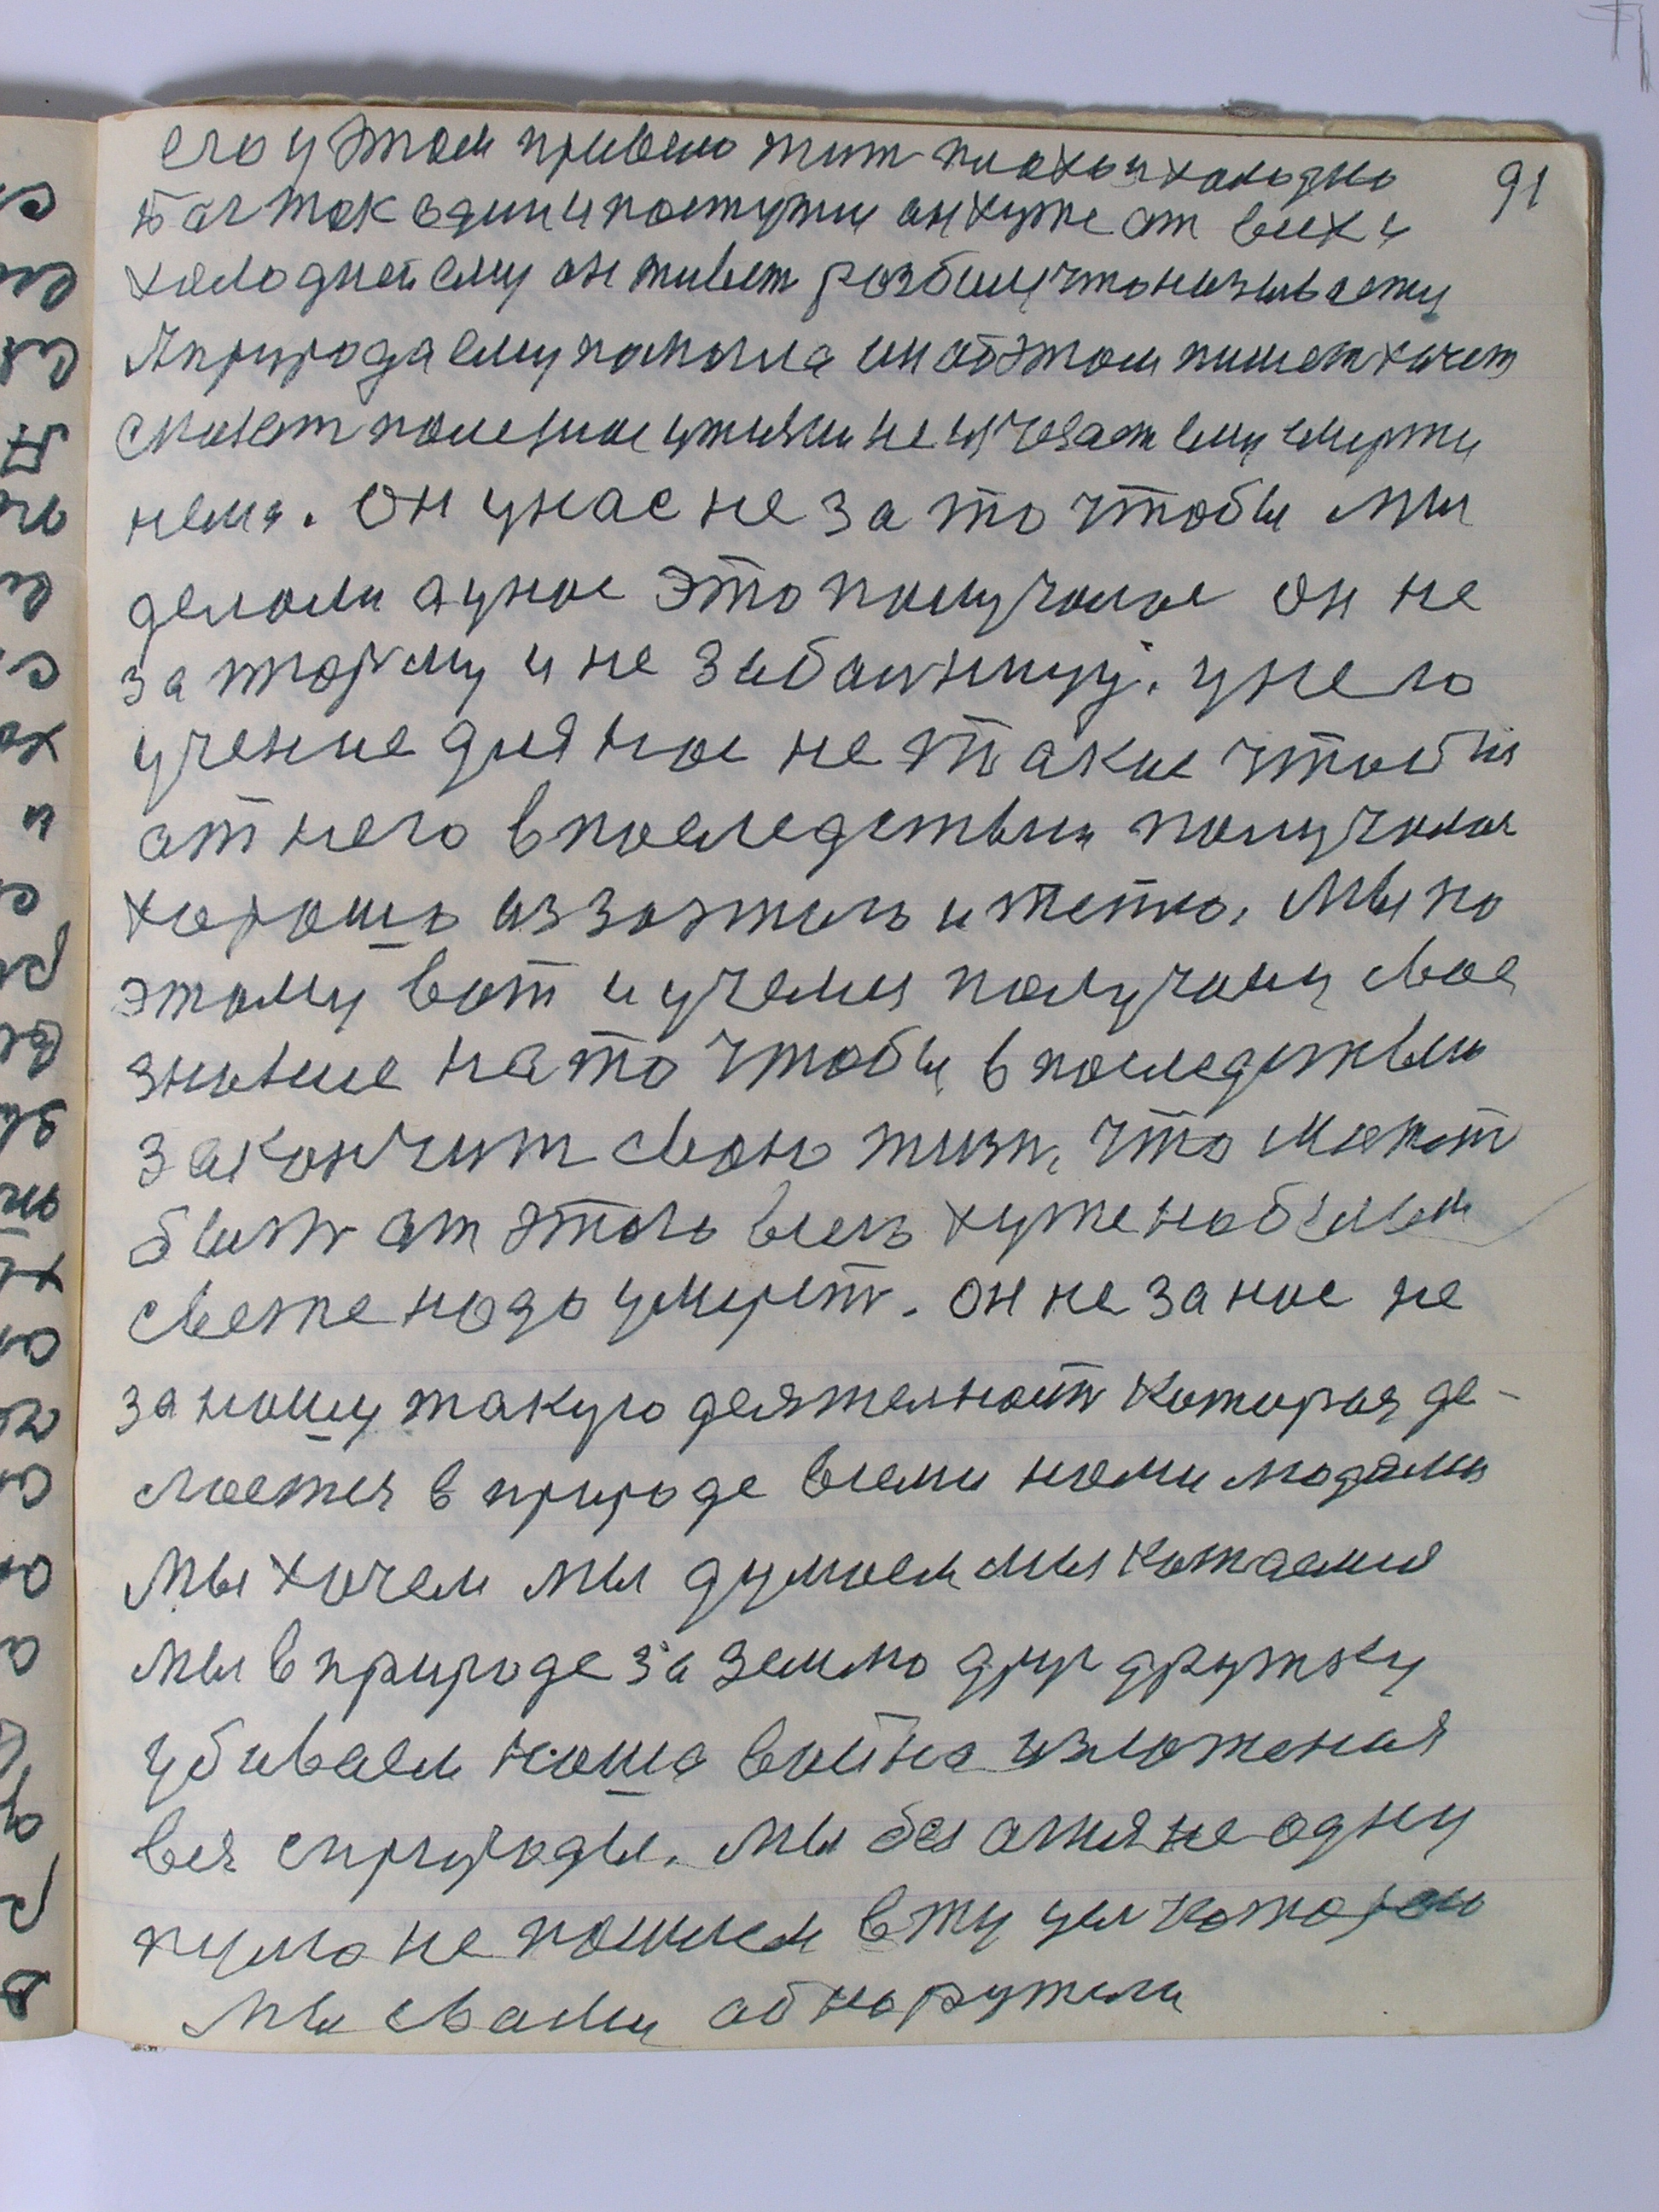 91
его у этом привело жит плохо и холодно
Бог так один и поступи он хуже от всех и
холодней ему он живет разбиму что называетц
А природа ему помогла он об этом пишет хочет
сможет полезное у жизни не исчезает ему смерти
нема. Он у нас не за то чтобы мы
делоли а у нас это получалос он не
за торму и не за болницу. у него
учение для нас не такое чтобы
от него впоследствии получалос
хорошо из за этого и тепло. Мы по
этому вот и учемся получаим свое
знание на то чтобы в последствии
закончит свою жизн, что может
быть от этого всего хуже на белым
свете надо умереть. он не за нас не
за нашу такую деятелность которая де-
лается в природе всеми нами людями
Мы хочем мы думаем мы катаемся
мы в природе за землю друг дружку
убиваем наша война изложения
вся с природы. Мы без огня не одну
пулю не пошлем в ту цел которою
мы с вами обнаружели